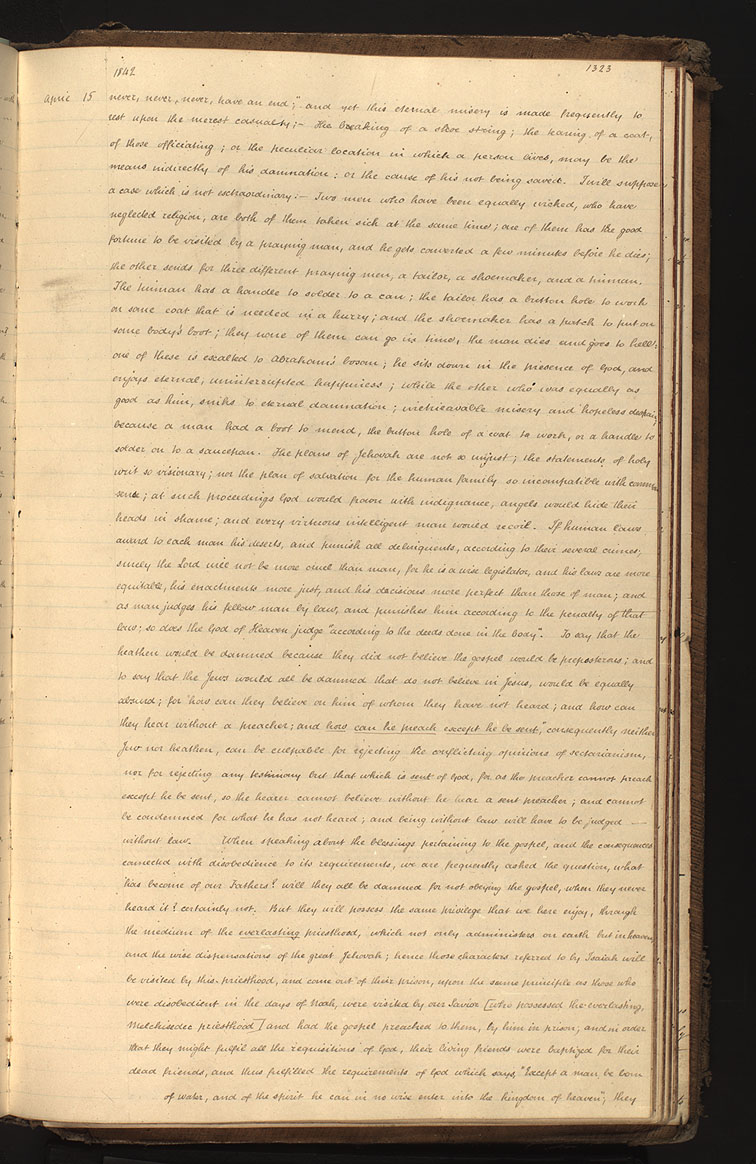 1842 1323
April 15 never, never, never, have an end;" and yet this eternal misery is made frequently to
rest upon the merest casualty;— The breaking of a shoe string; the tearing of a coat,
of those officiating; or the peculiar location in which a person lives, may be the
means indirectly of his damnation; or the cause of his not being saved. I will suppose
a case which is not extraordinary:— Two men who have been equally wicked, who have
neglected religion, are both of them taken sick at the same time; one of them has the good
fortune to be visited by a praying man, and he gets converted a few minutes before he dies;
the other sends for three different praying men, a tailor, a shoemaker, and a tinman.
The tinman has a handle to solder to a can; the tailor has a button hole to work
on some coat that is needed in a hurry; and the shoemaker has a patch to put on
some body's boot; they none of them can go in time, the man dies and goes to hell!;
one of these is exalted to Abraham's bosom; he sits down in the presence of God, and
enjoys eternal, uninterrupted happiness; while the other who was equally as
good as him, sinks to eternal damnation; irretrievable misery and hopeless despair;
because a man had a boot to mend, the button hole of a coat to work, or a handle to
solder on to a saucepan. The plans of Jehovah are not so unjust; the statements of holy
writ so visionary; nor the plan of salvation for the human family so incompatible with common
sense; at such proceedings God would frown with indignance, angels would hide their
heads in shame; and every virtuous intelligent man would recoil. If human laws
award to each man his deserts, and punish all delinquents, according to their several crimes;
surely the Lord will not be more cruel than man, for he is a wise legislator, and his laws are more
equitable, his enactments more just, and his decisions more perfect than those of man; and
as man judges his fellow man by law, and punishes him according to the penalty of that
law; so does the God of Heaven judge "according to the deeds done in the Body". To say that the
heathen would be damned because they did not believe the gospel would be preposterous; and
to say that the Jews would all be damned that do not believe in Jesus, would be equally
absurd; for "how can they believe on him of whom they have not heard; and how can
they hear without a preacher; and how can he preach except he be sent," consequently neither
Jew nor heathen, can be culpable for rejecting the conflicting opinions of sectarianism,
nor for rejecting any testimony but that which is sent of God, for as the preacher cannot preach
except he be sent, so the hearer cannot believe without he hear a sent preacher; and cannot
be condemned for what he has not heard; and being without law will have to be judged —
without law. When speaking about the blessings pertaining to the gospel, and the consequences
connected with disobedience to its requirements, we are frequently asked the question, what
has become of our Fathers? will they all be damned for not obeying the gospel, when they never
heard it? certainly not. But they will possess the same privilege that we here enjoy, through
the medium of the everlasting priesthood, which not only administers on earth but in heaven,
and the wise dispensations of the great Jehovah; hence those characters referred to by Isaiah will
be visited by this priesthood, and come out of their prison, upon the same principle as those who
were disobedient in the days of Noah, were visited by our Savior [who possessed the everlasting,
Melchisedec priesthood] and had the gospel preached to them, by him in prison; and in order
that they might fulfil all the requisitions of God, their living friends were baptized for their
dead friends, and thus fulfilled the requirements of God which says, "Except a man be born
of water, and of the spirit he can in no wise enter into the kingdom of heaven"; they